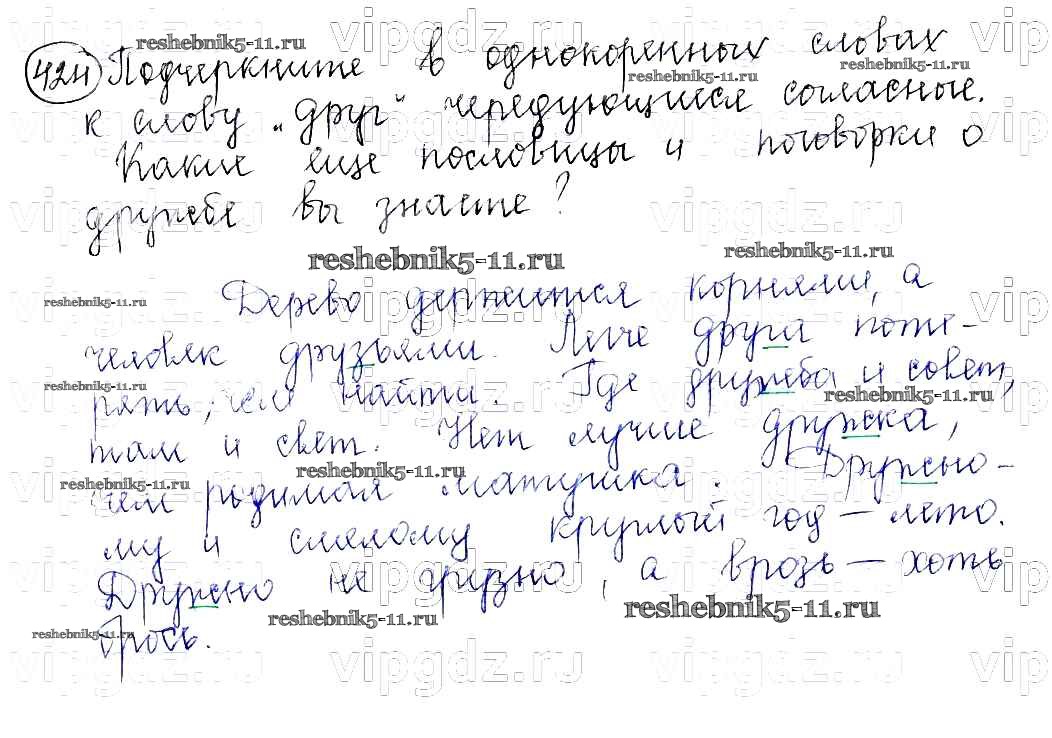 424 Подчеркните в однокоренных словах
к слову „друг" чередующиеся согласные.
Какие еще пословицы и поговорки о
дружбе вы знаете?
Дерево держится корнями, а
человек друзьями. Легче друга поте-
рять, чем найти. Где дружба и совет,
там и свет. Нет лучше дружка,
чем родимая матушка. Дружно-
му и смелому круглый год – лето.
Дружно не грузно, а врозь – хоть
брось.
reshebnik5-11.ru
vipgdz.ru